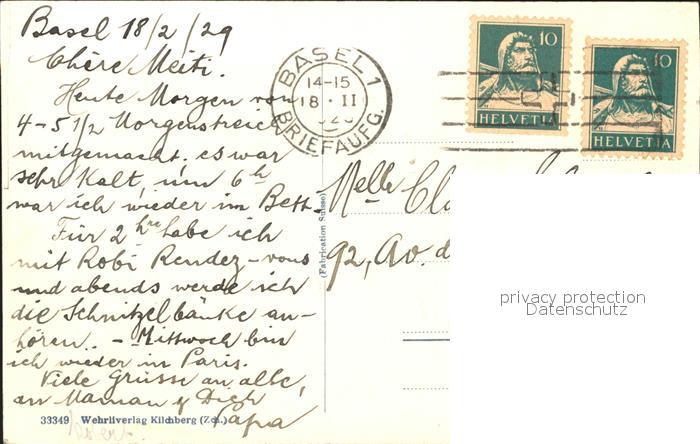 Basel 18/2/29
Chère Meiti.
Heute Morgen von
4-5 1/2 Morgenstreich
mitgemacht. es war
sehr Kalt, um 6h
war ich wieder im Bett.
Für 2 hre habe ich
mit Robi Rendez-vous
und abends werde ich
die Schnitzelbänke an-
hören. - Mittwoch bin
ich wieder in Paris.
Viele Grüsse an alle,
an Maman & Dich
Papa
33349 Wehrliverlag Kilchberg (Zch.)
(Fabrication Suisse)
BASEL 1
14-15
18 · II
BRIEFAUFG.
10
HELVETIA
10
HELVETIA
Melle
92, Av. d
privacy protection
Datenschutz